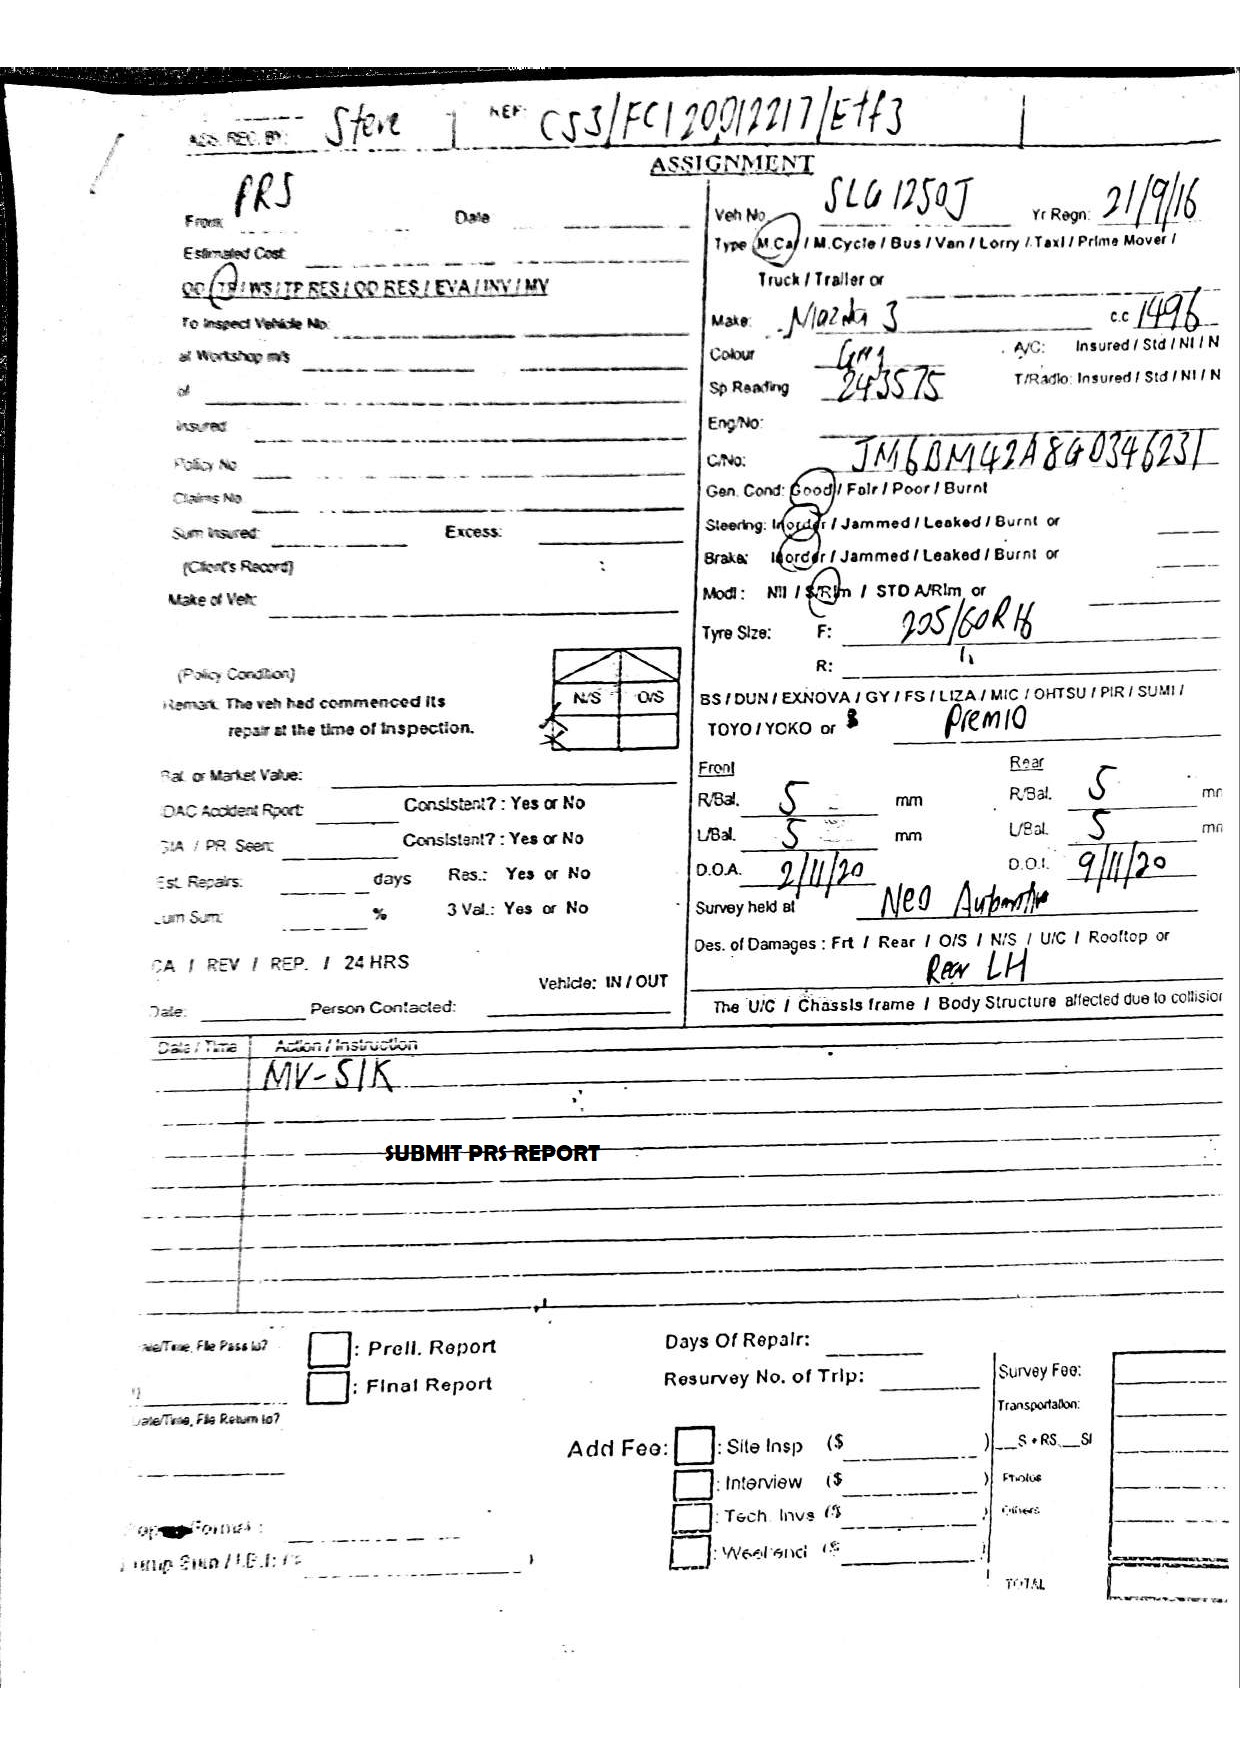 ASS. REC. BY: Steve REF: CS3/FCI20012217/Etf3
ASSIGNMENT
From: PRS Date
Estimated Cost:
OD / TP / WS / TP RES / OD RES / EVA / INV / MV
To Inspect Vehicle No:
at Workshop m/s
of
Insured
Policy No
Claims No
Sum Insured: Excess:
(Client's Record)
Make of Veh:
(Policy Condition)
Remark: The veh had commenced its
repair at the time of inspection.
N/S O/S
Bal. or Market Value:
IDAC Accident Rport: Consistent? : Yes or No
GIA / PR Seen: Consistent? : Yes or No
Est. Repairs: days Res.: Yes or No
Lum Sum: % 3 Val.: Yes or No
CA / REV / REP. / 24 HRS
Vehicle: IN / OUT
Date: Person Contacted:
Veh No SLG1250J Yr Regn: 21/9/16
Type M.Car / M.Cycle / Bus / Van / Lorry / Taxi / Prime Mover /
Truck / Trailer or
Make: Mazda 3 c.c 1496
Colour Grey A/C: Insured / Std / NI / N
Sp Reading 243575 T/Radio: Insured / Std / NI / N
Eng/No:
C/No: JM6BM42A8G0346231
Gen. Cond: Good / Fair / Poor / Burnt
Steering: Inorder / Jammed / Leaked / Burnt or
Brake: Inorder / Jammed / Leaked / Burnt or
Modi: Nil / S/Rim / STD A/Rim or
Tyre Size: F: 205/60R16
R: "
BS / DUN / EXNOVA / GY / FS / LIZA / MIC / OHTSU / PIR / SUMI /
TOYO / YOKO or Premio
Front Rear
R/Bal. 5 mm R/Bal. 5 mm
L/Bal. 5 mm L/Bal. 5 mm
D.O.A. 2/11/20 D.O.I. 9/11/20
Survey held at Neo Automotive
Des. of Damages : Frt / Rear / O/S / N/S / U/C / Rooftop or
Rear LH
The U/C / Chassis frame / Body Structure affected due to collision
Date / Time Action / Instruction
MV-51K
SUBMIT PRS REPORT
Date/Time, File Pass to?
: Preli. Report
: Final Report
Date/Time, File Return to?
Days Of Repair:
Resurvey No. of Trip:
Add Fee: : Site Insp ($ )
: Interview ($ )
: Tech. Invs ($ )
: Weekend ($ )
Survey Fee:
Transportation:
S + RS SI
Photos
Others
TOTAL